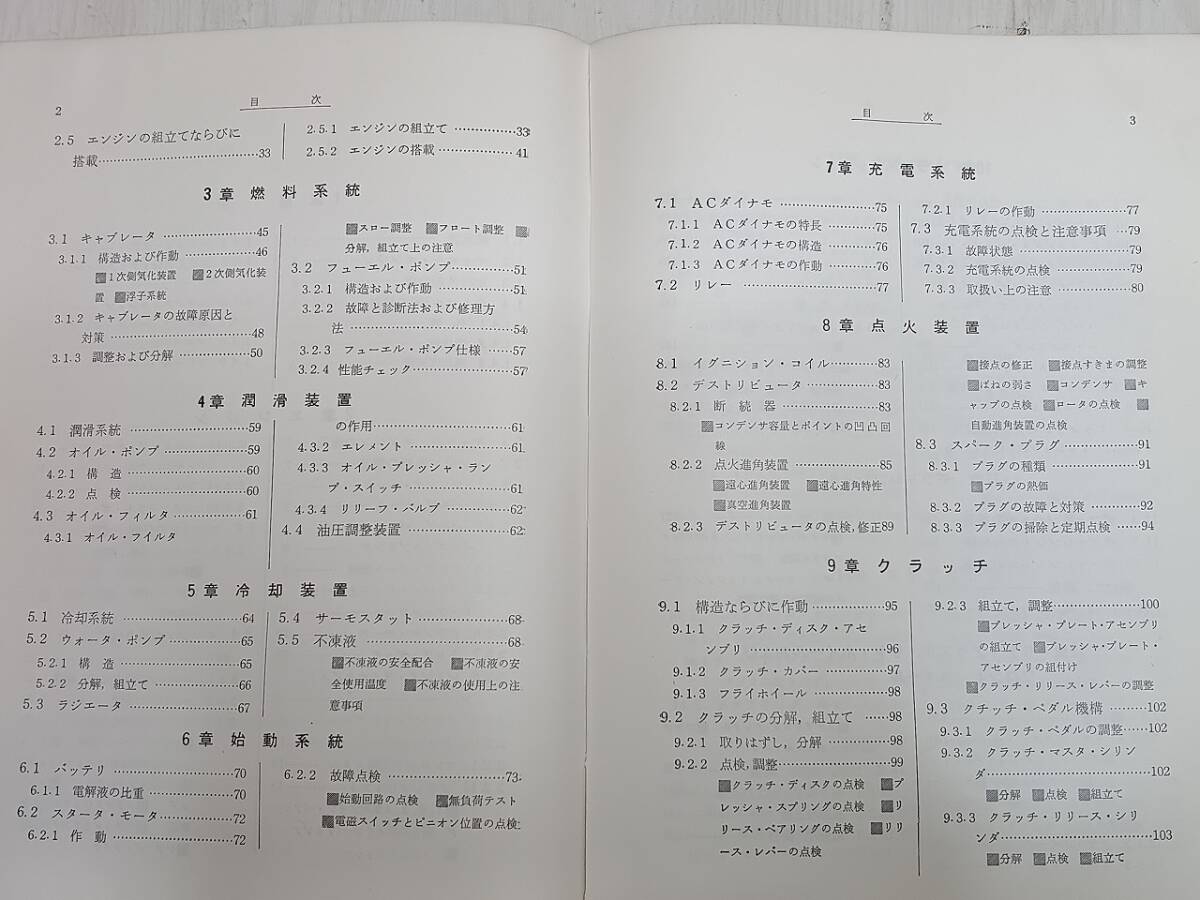 2
目次
2.5 エンジンの組立てならびに
搭載……………………………33
2.5.1 エンジンの組立て……………33
2.5.2 エンジンの搭載………………41
3章 燃料系統
3.1 キャブレータ……………………45
3.1.1 構造および作動……………46
▨1次側気化装置 ▨2次側気化装
置 ▨浮子系統
3.1.2 キャブレータの故障原因と
対策……………………………48
3.1.3 調整および分解……………50
▨スロー調整 ▨フロート調整 ▨
分解，組立て上の注意
3.2 フューエル・ポンプ……………51
3.2.1 構造および作動……………51
3.2.2 故障と診断法および修理方
法………………………………54
3.2.3 フューエル・ポンプ仕様……57
3.2.4 性能チェック………………57
4章 潤滑装置
4.1 潤滑系統…………………………59
4.2 オイル・ポンプ…………………59
4.2.1 構造…………………………60
4.2.2 点検…………………………60
4.3 オイル・フィルタ………………61
4.3.1 オイル・フイルタ
の作用…………………………61
4.3.2 エレメント…………………61
4.3.3 オイル・プレッシャ・ラン
プ・スイッチ…………………61
4.3.4 リリーフ・バルブ…………62
4.4 油圧調整装置……………………62
5章 冷却装置
5.1 冷却系統…………………………64
5.2 ウォータ・ポンプ………………65
5.2.1 構造…………………………65
5.2.2 分解，組立て………………66
5.3 ラジエータ………………………67
5.4 サーモスタット…………………68
5.5 不凍液……………………………68
▨不凍液の安全配合 ▨不凍液の安
全使用温度 ▨不凍液の使用上の注
意事項
6章 始動系統
6.1 バッテリ…………………………70
6.1.1 電解液の比重………………70
6.2 スタータ・モータ………………72
6.2.1 作動…………………………72
6.2.2 故障点検……………………73
▨始動回路の点検 ▨無負荷テスト
▨電磁スイッチとピニオン位置の点検
目次
3
7章 充電系統
7.1 ACダイナモ……………………75
7.1.1 ACダイナモの特長…………75
7.1.2 ACダイナモの構造…………76
7.1.3 ACダイナモの作動…………76
7.2 リレー……………………………77
7.2.1 リレーの作動………………77
7.3 充電系統の点検と注意事項……79
7.3.1 故障状態……………………79
7.3.2 充電系統の点検……………79
7.3.3 取扱い上の注意……………80
8章 点火装置
8.1 イグニション・コイル…………83
8.2 デストリビュータ………………83
8.2.1 断続器………………………83
▨コンデンサ容量とポイントの凹凸回
線
8.2.2 点火進角装置………………85
▨遠心進角装置 ▨遠心進角特性
▨真空進角装置
8.2.3 デストリビュータの点検，修正89
▨接点の修正 ▨接点すきまの調整
▨ばねの弱さ ▨コンデンサ ▨キ
ャップの点検 ▨ロータの点検 ▨
自動進角装置の点検
8.3 スパーク・プラグ………………91
8.3.1 プラグの種類………………91
▨プラグの熱価
8.3.2 プラグの故障と対策………92
8.3.3 プラグの掃除と定期点検……94
9章 クラッチ
9.1 構造ならびに作動………………95
9.1.1 クラッチ・ディスク・アセ
ンブリ…………………………96
9.1.2 クラッチ・カバー…………97
9.1.3 フライホイール……………98
9.2 クラッチの分解，組立て………98
9.2.1 取りはずし，分解…………98
9.2.2 点検，調整…………………99
▨クラッチ・ディスクの点検 ▨プ
レッシャ・スプリングの点検 ▨リ
リース・ベアリングの点検 ▨リリ
ース・レバーの点検
9.2.3 組立て，調整………………100
▨プレッシャ・プレート・アセンブリ
の組立て ▨プレッシャ・プレート・
アセンブリの組付け
▨クラッチ・リリース・レバーの調整
9.3 クチッチ・ペダル機構…………102
9.3.1 クラッチ・ペダルの調整……102
9.3.2 クラッチ・マスタ・シリン
ダ………………………………102
▨分解 ▨点検 ▨組立て
9.3.3 クラッチ・リリース・シリ
ンダ……………………………103
▨分解 ▨点検 ▨組立て